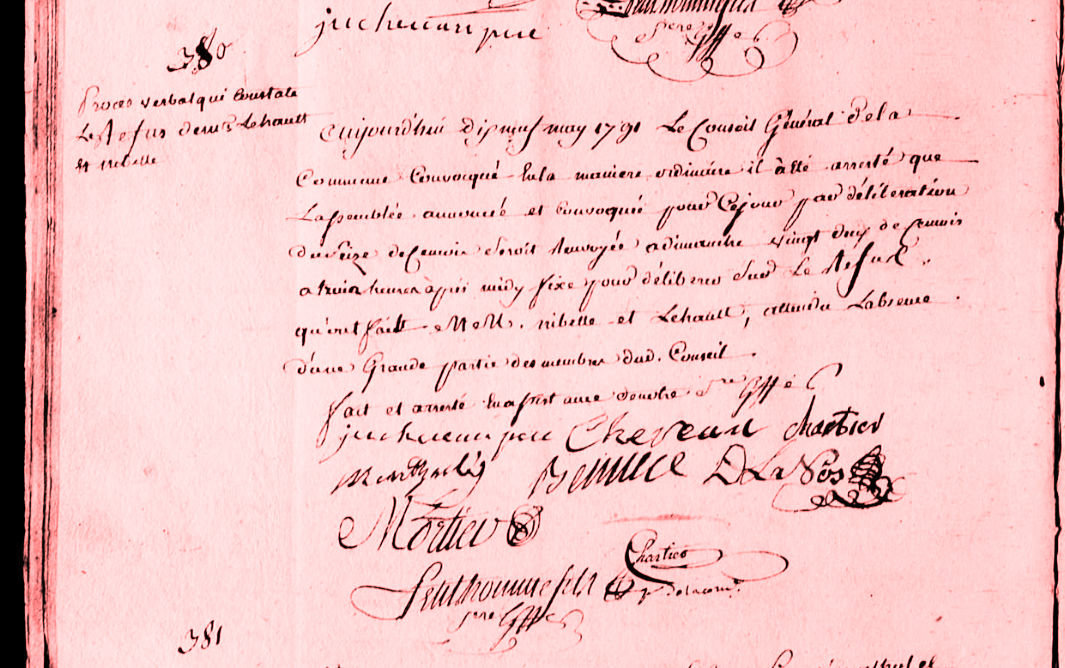 juchereau pere Petithomme fils
Sre Gffe
380
Proces verbal qui Constate
Le Refus de mrs Lehault
et ribelle
aujourd'hui dix neuf may 1791 Le Conseil Général de la
Commune Convocqué En la maniere ordinaire il a été arresté que
Lassemblée annoncée et Convoquée pour Cejour par déliberation
du seize de Cemois seroit Renvoyée a dimanche vingt deux de Cemois
a trois heures après midy fixe pour déliberer sur Le Refus
qu'ont fait MM. ribelle et Lehault, attendu Labsence
d'une Grande partie des membres dud. Conseil
fait et arresté Laprist avec Sre Gffe
juchereau pere Chereau Chartier
Bennece DLaNos
Mortier
Chartier
Petithomme fils pr delacom.
Sre Gffe
381